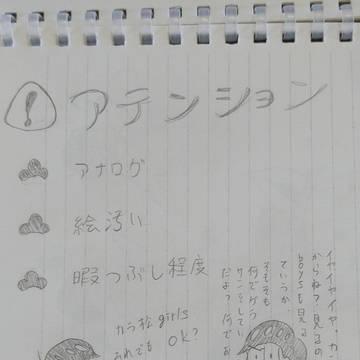 ! アテンション
アナログ
絵汚い
暇つぶし程度
イヤイヤイヤ、カ
からね?見るの
boysも見る
ていうか
そもそも
何でガ
だよ?何でお
カラ松girls
それでも
OK?